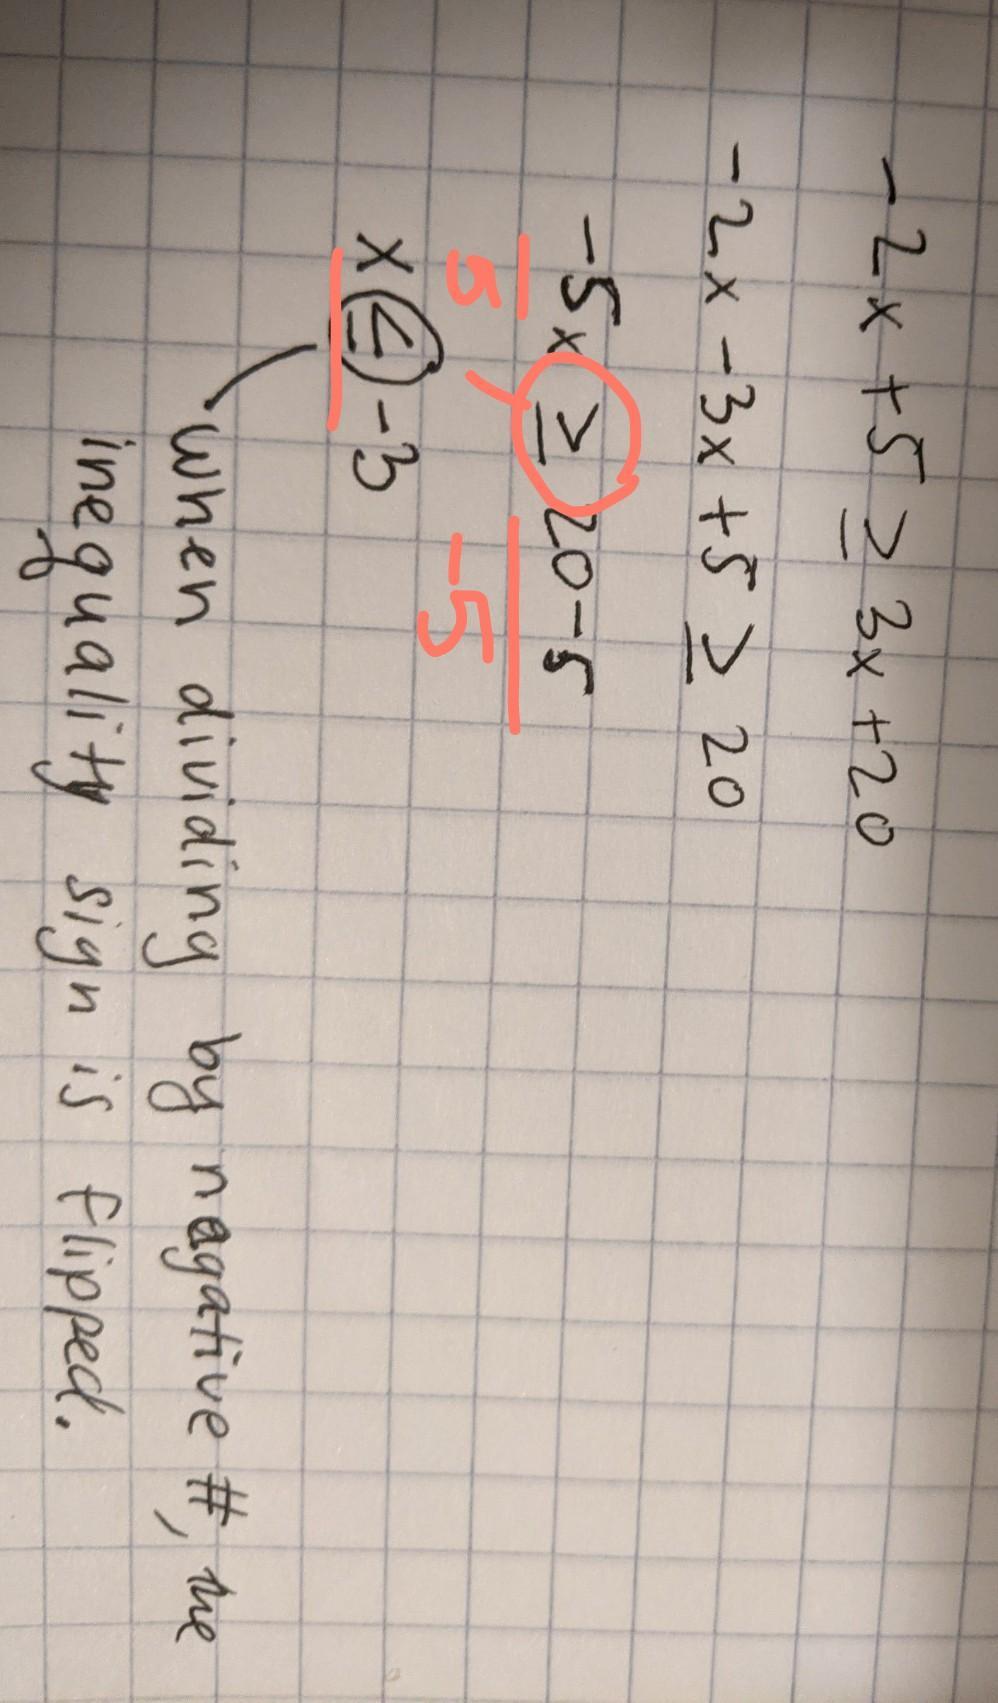 -2x +5 ≥ 3x +20
-2x -3x +5 ≥ 20
-5x ≥ 20-5
5 -5
x ≤ -3
when dividing by nagative #, the
inequality sign is flipped.